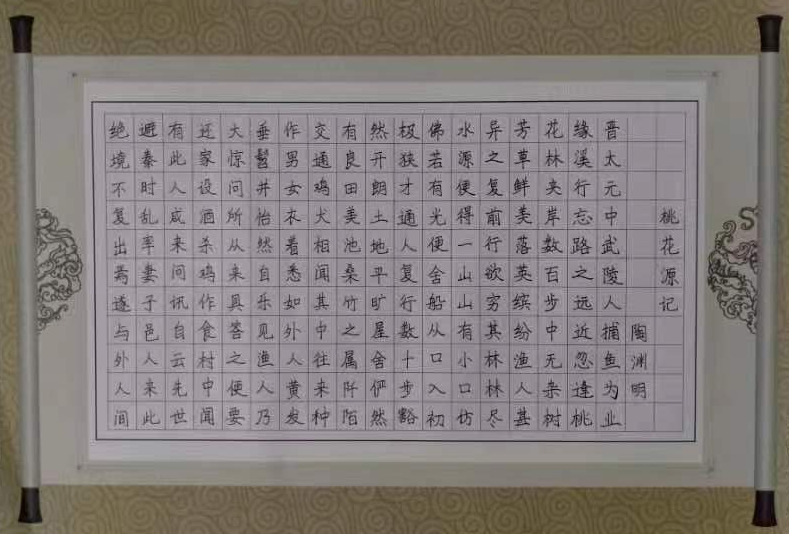 桃花源记
陶渊明
晋太元中武陵人捕鱼为业
缘溪行忘路之远近忽逢桃
花林夹岸数百步中无杂树
芳草鲜美落英缤纷渔人甚
异之复前行欲穷其林林尽
水源便得一山山有小口仿
佛若有光便舍船从口入初
极狭才通人复行数十步豁
然开朗土地平旷屋舍俨然
有良田美池桑竹之属阡陌
交通鸡犬相闻其中往来种
作男女衣着悉如外人黄发
垂髫并怡然自乐见渔人乃
大惊问所从来具答之便要
还家设酒杀鸡作食村中闻
有此人咸来问讯自云先世
避秦时乱率妻子邑人来此
绝境不复出焉遂与外人间